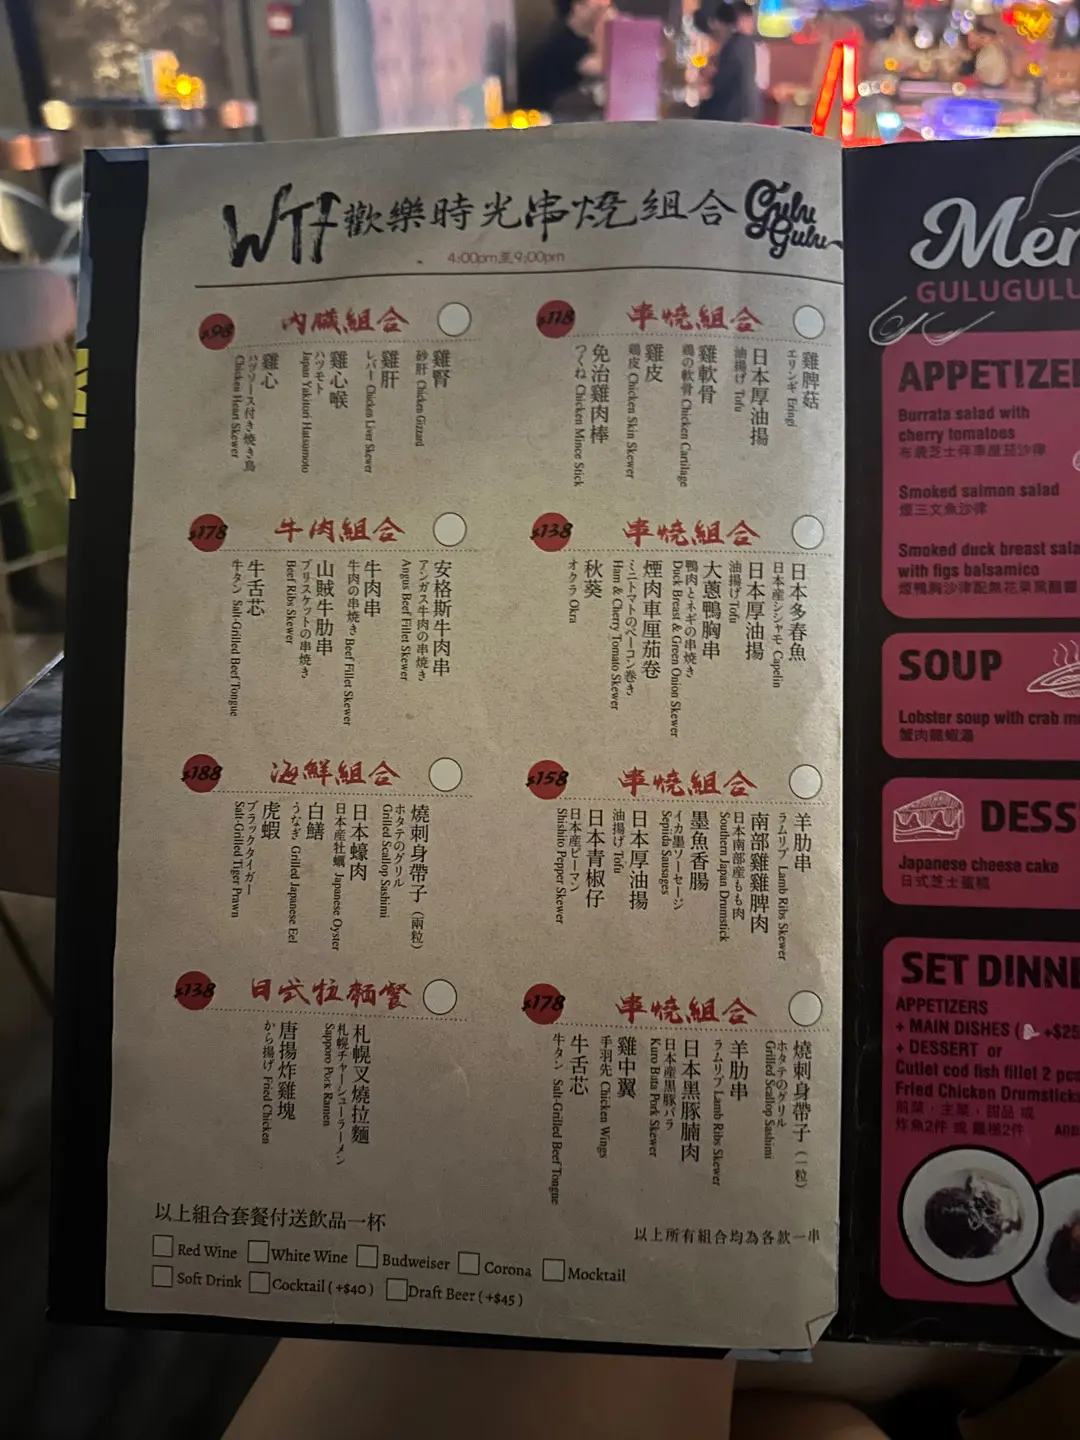 WTF 歡樂時光串燒組合 Gulu Gulu
4:00pm至9:00pm
$118 串燒組合
雞脾菇
エリンギ Eringi
日本厚油揚
油揚げ Tofu
雞軟骨
鶏の軟骨 Chicken Cartilage
雞皮
鶏皮 Chicken Skin Skewer
免治雞肉棒
つくね Chicken Mince Stick
$98 內臟組合
雞腎
砂肝 Chicken Gizzard
雞肝
レバー Chicken Liver Skewer
雞心喉
ハツモト
Japan Yakitori Hatsumoto
雞心
ハツソース付き焼き鳥
Chicken Heart Skewer
$138 串燒組合
日本多春魚
日本産シシャモ Capelin
日本厚油揚
油揚げ Tofu
大蔥鴨胸串
鴨肉とネギの串焼き
Duck Breast & Green Onion Skewer
煙肉車厘茄卷
ミニトマトのベーコン巻き
Ham & Cherry Tomato Skewer
秋葵
オクラ Okra
$178 牛肉組合
安格斯牛肉串
アンガス牛肉の串焼き
Angus Beef Fillet Skewer
牛肉串
牛肉の串焼き Beef Fillet Skewer
山賊牛肋串
ブリスケットの串焼き
Beef Ribs Skewer
牛舌芯
牛タン Salt-Grilled Beef Tongue
$158 串燒組合
羊肋串
ラムリブ Lamb Ribs Skewer
南部雞雞脾肉
日本南部産もも肉
Southern Japan Drumstick
墨魚香腸
イカ墨ソーセージ
Sepiida Sausages
日本厚油揚
油揚げ Tofu
日本青椒仔
日本産ピーマン
Shishito Pepper Skewer
$188 海鮮組合
燒刺身帶子（兩粒）
ホタテのグリル
Grilled Scallop Sashimi
日本蠔肉
日本産牡蠣 Japanese Oyster
白鱔
うなぎ Grilled Japanese Eel
虎蝦
ブラックタイガー
Salt-Grilled Tiger Prawn
$178 串燒組合
燒刺身帶子（一粒）
ホタテのグリル
Grilled Scallop Sashimi
羊肋串
ラムリブ Lamb Ribs Skewer
日本黑豚腩肉
日本産黒豚バラ
Kuro Buta Pork Skewer
雞中翼
手羽先 Chicken Wings
牛舌芯
牛タン Salt-Grilled Beef Tongue
$138 日式拉麵餐
札幌叉燒拉麵
札幌チャーシューラーメン
Sapporo Pork Ramen
唐揚炸雞塊
から揚げ Fried Chicken
以上所有組合均為各款一串
以上組合套餐付送飲品一杯
Red Wine White Wine Budweiser Corona Mocktail
Soft Drink Cocktail ( +$40 ) Draft Beer ( +$45 )
Men
GULUGULU
APPETIZE
Burrata salad with
cherry tomatoes
布袋芝士伴車厘茄沙律
Smoked salmon salad
煙三文魚沙律
Smoked duck breast sala
with figs balsamico
煙鴨胸沙律配無花果黑醋醬
SOUP
Lobster soup with crab m
蟹肉龍蝦湯
DESS
Japanese cheese cake
日式芝士蛋糕
SET DINN
APPETIZERS
+ MAIN DISHES ( +$25
+ DESSERT or
Cutlet cod fish fillet 2 pc
Fried Chicken Drumstick
前菜，主菜，甜品 或
炸魚2件 或 雞槌2件